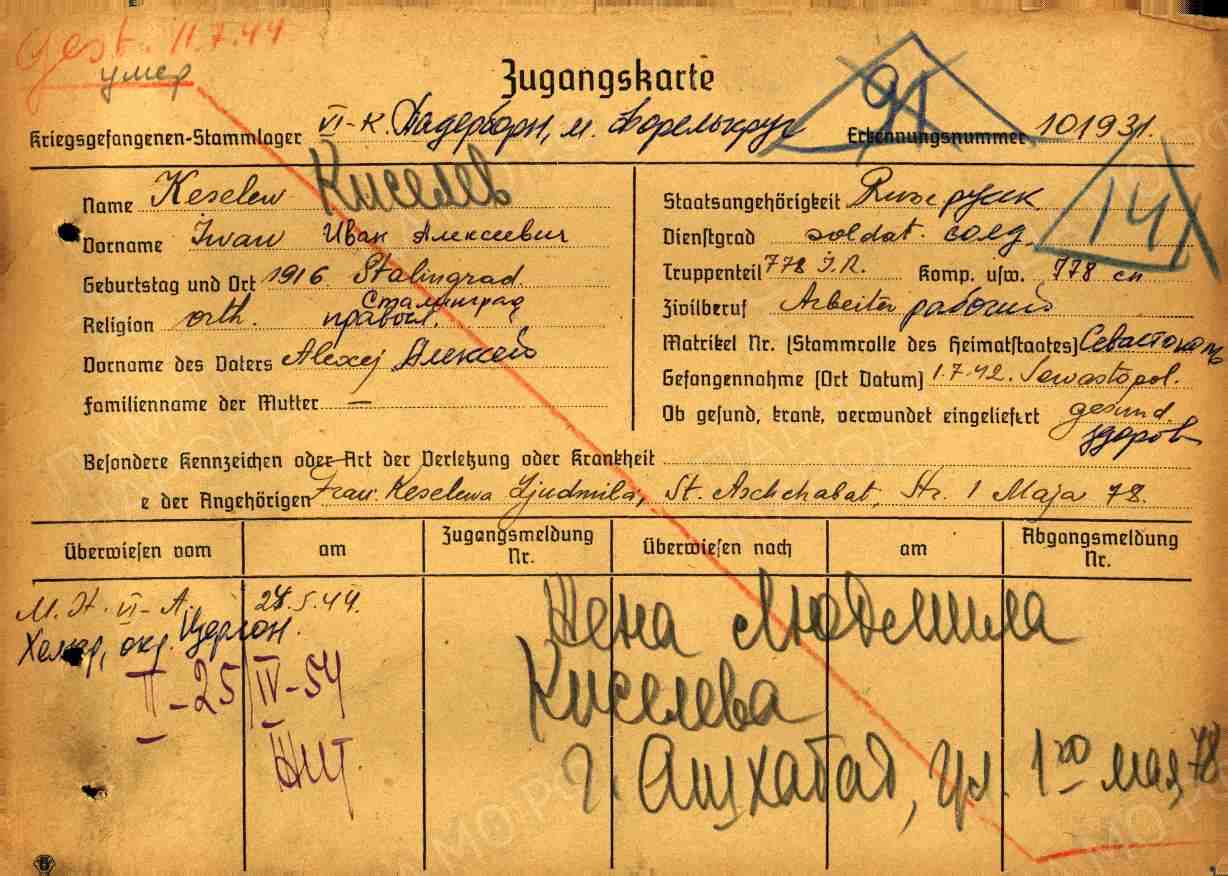 gest. 11.7.44
умер
Zugangskarte
91
Kriegsgefangenen-Stammlager VI-К. Падерборн, м. Форелькруг Erkennungsnummer 101931.
Name Keselew Киселев
Staatsangehörigkeit Russ русск
14
Vorname Iwan Иван Алексеевич
Dienstgrad soldat. солд.
Geburtstag und Ort 1916. Stalingrad.
Сталинград
Truppenteil 778 I.R. Komp. usw. 778 сп
Religion orth. правосл.
Zivilberuf Arbeiter рабочий
Vorname des Vaters Alexej Алексей
Matrikel Nr. (Stammrolle des Heimatstaates) Севастополь
Familienname der Mutter —
Gefangennahme (Ort Datum) 1.7.42. Sewastopol.
Ob gesund, krank, verwundet eingeliefert gesund.
здоров
Besondere Kennzeichen oder Art der Verletzung oder Krankheit
e der Angehörigen Frau: Keselewa Ljudmila, St. Aschchabat, Str. 1 Maja 78.
Überwiesen vom am Zugangsmeldung Nr. Überwiesen nach am Abgangsmeldung Nr.
VI-A. 28.5.44.
Хемер, окр. Изерлон.
II-25/IV-54
Жена Людмила
Киселева
г. Ашхабад, ул. 1го мая 78